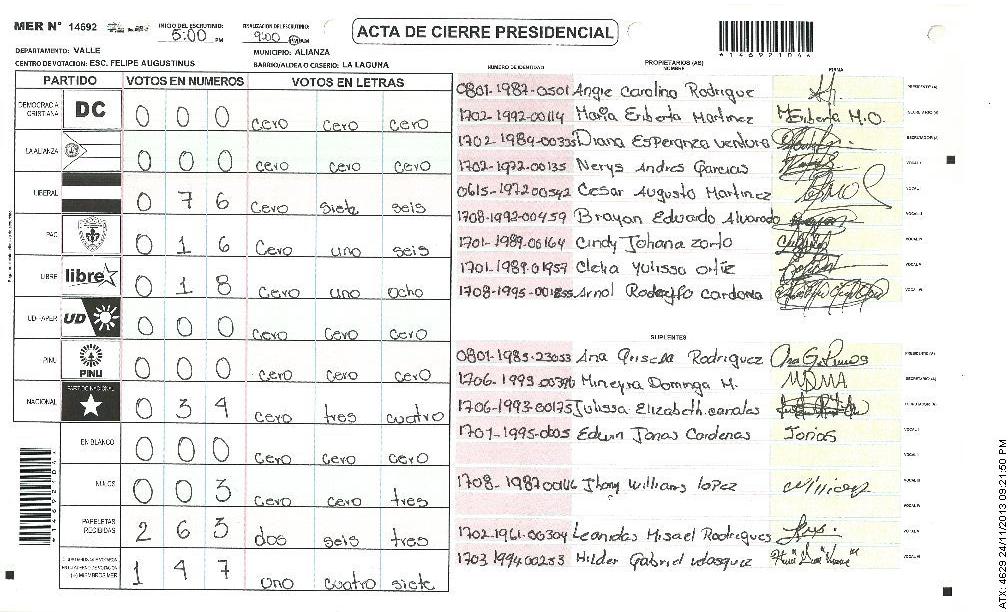 MER N° 14692 INICIO DEL ESCRUTINIO: 5:00 PM FINALIZACION DEL ESCRUTINIO: 9:00 PM ACTA DE CIERRE PRESIDENCIAL
DEPARTAMENTO: VALLE MUNICIPIO: ALIANZA
CENTRO DE VOTACION: ESC. FELIPE AUGUSTINUS BARRIO/ALDEA O CASERIO: LA LAGUNA
PARTIDO VOTOS EN NUMEROS VOTOS EN LETRAS
DEMOCRACIA CRISTIANA DC 0 0 0 cero cero cero
LA ALIANZA 0 0 0 cero cero cero
LIBERAL 0 7 6 cero siete seis
PAC 0 1 6 cero uno seis
LIBRE libre 0 1 8 cero uno ocho
UD-FAPER UD 0 0 0 cero cero cero
PINU PINU 0 0 0 cero cero cero
NACIONAL PARTIDO NACIONAL 0 3 4 cero tres cuatro
EN BLANCO 0 0 0 cero cero cero
NULOS 0 0 3 cero cero tres
PAPELETAS RECIBIDAS 2 6 3 dos seis tres
1 4 7 uno cuatro siete
NUMERO DE IDENTIDAD PROPIETARIOS (AS) NOMBRE FIRMA
0801-1987-0501 Angie Carolina Rodrigue PRESIDENTE (A)
1702-1992-00114 Maria Eriberta Martinez Meriberta M.O. SECRETARIO (A)
1702-1989-00335 Diana Esperanza Ventura ESCRUTADOR (A)
1702-1972-00135 Nerys Andres Garcias VOCAL I
0615-197200542 Cesar Augusto Martinez
1708-1992-00459 Brayan Eduardo Alvarado
1701-1989-00164 Cindy Johana Zorto
1701-1989-01957 Clelia Yulissa Ortiz
1708-1995-001855 Arnol Rodolfo Cardona
SUPLENTES
0801-1985-23053 Ana Grisela Rodriguez PRESIDENTE (A)
1706-1993-00396 Mineyra Dominga M. MDMA SECRETARIO (A)
1706-1993-00175 Julissa Elizabeth canales
1701-1995-0005 Edwin Jonas Cardenas Jonas
1708-1987 00116 Jhony Williams Lopez
1702-1961-00304 Leonidas Misael Rodrigues
1703 1994 00253 Hilder Gabriel Velasquez
*1469210A*
ATX: 4629 24/11/2013 09:21:50 PM